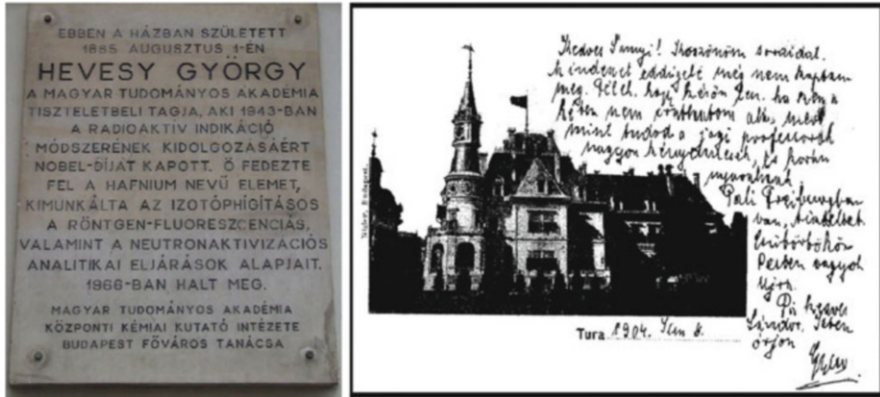 EBBEN A HÁZBAN SZÜLETETT
1885 AUGUSZTUS 1-ÉN
HEVESY GYÖRGY
A MAGYAR TUDOMÁNYOS AKADÉMIA
TISZTELETBELI TAGJA, AKI 1943-BAN
A RADIOAKTIV INDIKÁCIÓ
MÓDSZERÉNEK KIDOLGOZASÁÉRT
NOBEL-DÍJÁT KAPOTT. Ő FEDEZTE
FEL A HAFNIUM NEVŰ ELEMET,
KIMUNKÁLTA AZ IZOTÓPHÍGITÁSOS
A RÖNTGEN-FLUORESZCENCIÁS,
VALAMINT A NEUTRONAKTIVIZÁCIÓS
ANALITIKAI ELJÁRÁSOK ALAPJAIT.
1966-BAN HALT MEG.
MAGYAR TUDOMÁNYOS AKADÉMIA
KÖZPONTI KÉMIAI KUTATÓ INTÉZETE
BUDAPEST FŐVÁROS TANÁCSA
Kedves! Köszönöm soraidat.
eddigelé még nem kaptam
meg. hogy
nem
mint tudod a jogi professorok
nagyon kényelmesek, és korán
Pali Freiburgban
van,
Csütörtökön
Pesten vagyok
újra.
Pá kedves
Sándor. Isten
óvjon
Budapest.
Tura 1904. 8.